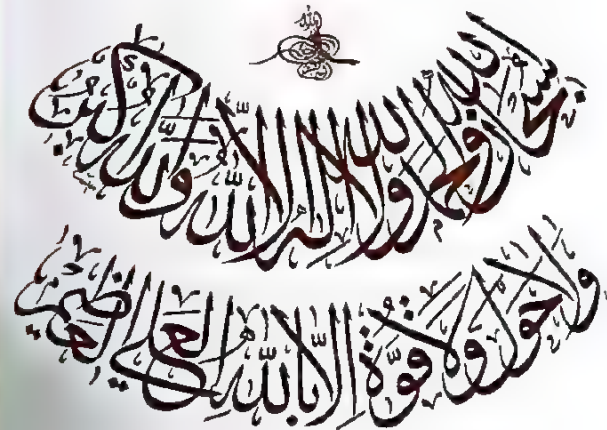 سبحان الله والحمد لله ولا إله إلا الله والله أكبر
ولا حول ولا قوة إلا بالله العلي العظيم